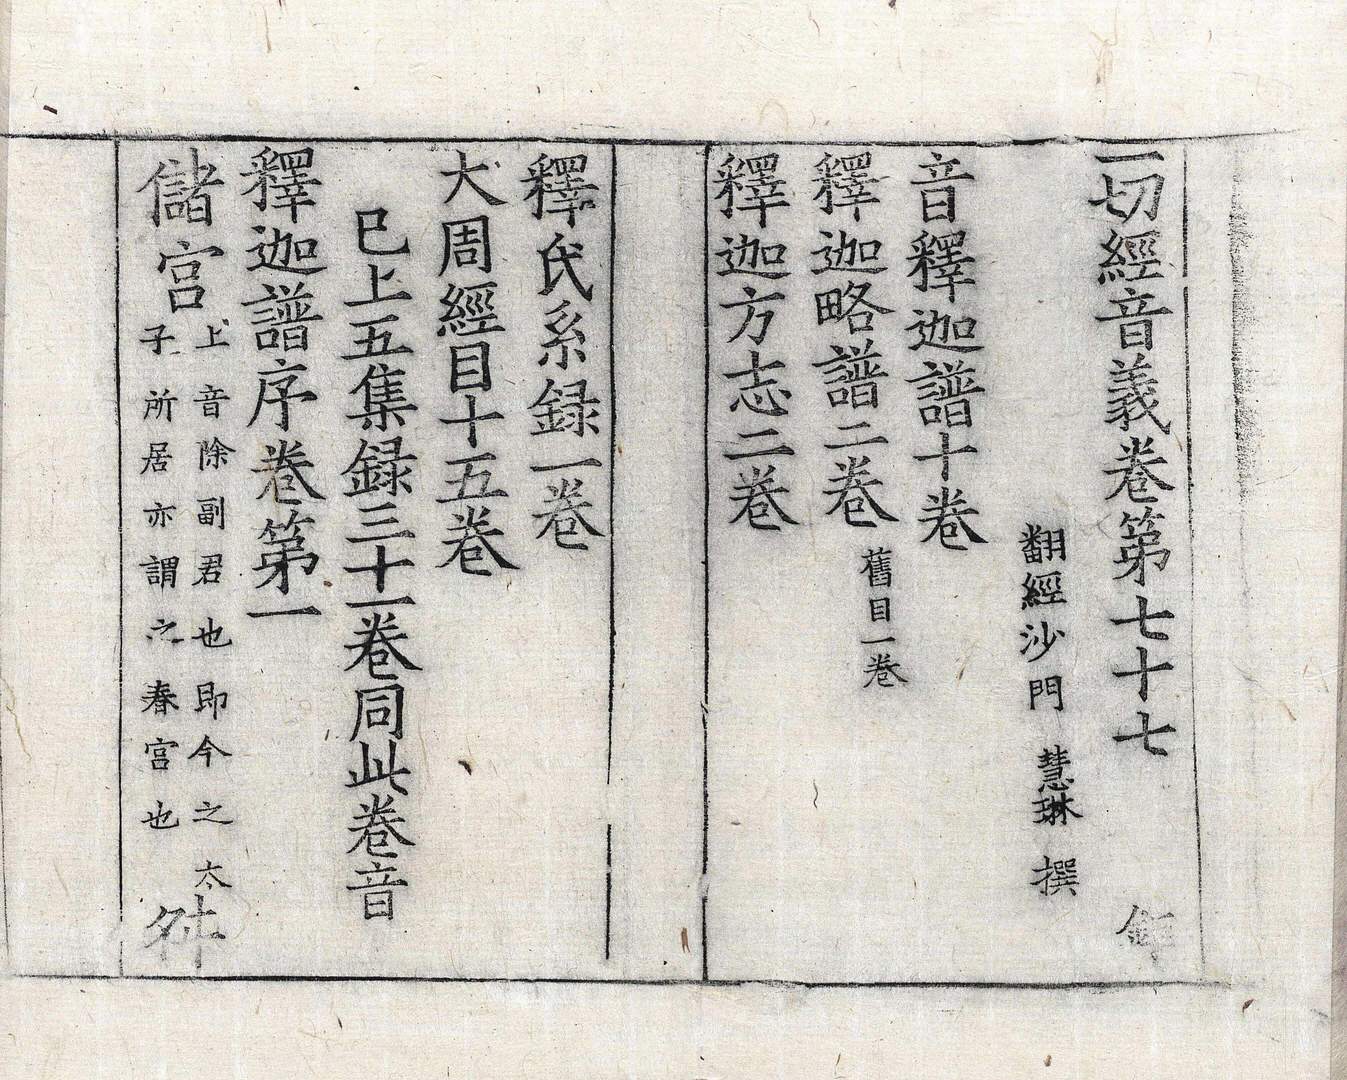 一切經音義卷第七十七
翻經沙門 慧琳 撰
音釋迦譜十卷
釋迦略譜二卷 舊目一卷
釋迦方志二卷
釋氏系録一卷
大周經目十五卷
已上五集録三十一卷同此卷音
釋迦譜序卷第一
儲宮
上音除副君也即今之太
子所居亦謂之春宮也
舛